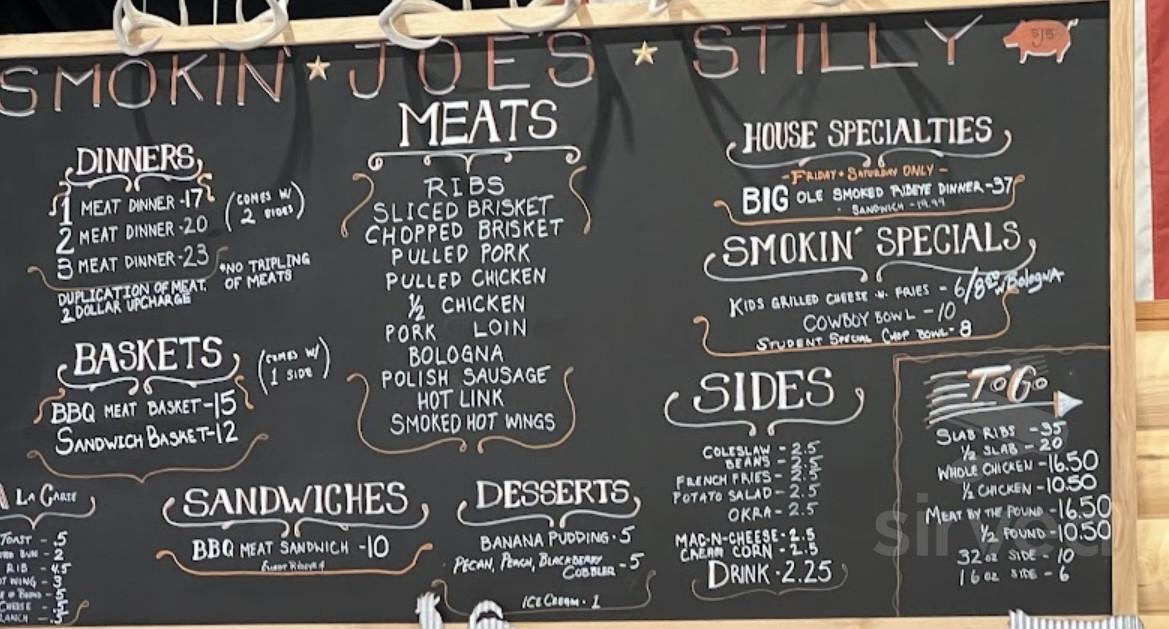 SMOKIN' JOE'S STILLY
SJS
DINNERS
1 MEAT DINNER -17
2 MEAT DINNER -20
3 MEAT DINNER -23
(COMES W/
2 SIDES)
*NO TRIPLING
OF MEATS
DUPLICATION OF MEAT.
2 DOLLAR UPCHARGE
BASKETS
(COMES W/
1 SIDE)
BBQ MEAT BASKET -15
SANDWICH BASKET -12
LA CARTE
TOAST - .5
BUN - 2
RIB - 4.5
WING - 3
SANDWICHES
BBQ MEAT SANDWICH -10
MEATS
RIBS
SLICED BRISKET
CHOPPED BRISKET
PULLED PORK
PULLED CHICKEN
½ CHICKEN
PORK LOIN
BOLOGNA
POLISH SAUSAGE
HOT LINK
SMOKED HOT WINGS
DESSERTS
BANANA PUDDING - 5
PECAN, PEACH, BLACKBERRY
COBBLER - 5
ICE CREAM - 1
HOUSE SPECIALTIES
-FRIDAY + SATURDAY ONLY -
BIG OLE SMOKED RIBEYE DINNER -37
SANDWICH - 19.99
SMOKIN' SPECIALS
KIDS GRILLED CHEESE N. FRIES - 6/8.50 w/ Bologna
COWBOY BOWL -10
STUDENT SPECIAL CHOP BOWL - 8
SIDES
COLESLAW - 2.5
BEANS - 2.5
FRENCH FRIES - 2.5
POTATO SALAD - 2.5
OKRA - 2.5
MAC-N-CHEESE - 2.5
CREAM CORN - 2.5
DRINK - 2.25
TO GO
SLAB RIBS - 35
½ SLAB - 20
WHOLE CHICKEN -16.50
½ CHICKEN -10.50
MEAT BY THE POUND -16.50
½ POUND -10.50
32 OZ SIDE - 10
16 OZ SIDE - 6
sirved